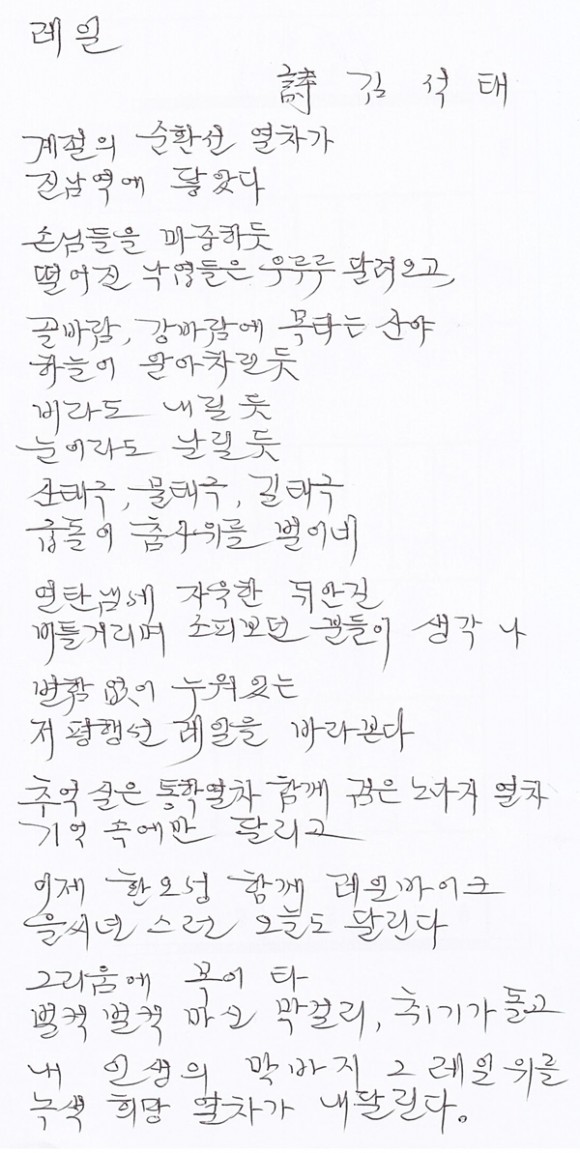 레일
詩 김석태
계절의 순환선 열차가
진남역에 닿았다
손님들을 마중하듯
떨어진 낙엽들은 우루루 달려오고,
골바람, 강바람에 목타는 산야
하늘이 알아차린 듯
비라도 내릴 듯
눈이라도 날릴 듯
산태극, 물태극, 길태극
굽돌이 춤사위를 벌이네
연탄냄새 자욱한 뒤안길
비틀거리며 소피보던 꾼들이 생각 나
변함 없이 누워있는
저 평행선 레일을 바라본다
추억 실은 통학열차 함께 꿈은 노다지 열차
기억 속에만 달리고
이제 환호성 함께 레일바이크
을씨년 스런 오늘도 달린다
그리움에 목이 타
벌컥 벌컥 마신 막걸리, 취기가 돌고
내 인생의 막바지 그 레일 위를
녹색 희망 열차가 내달린다.